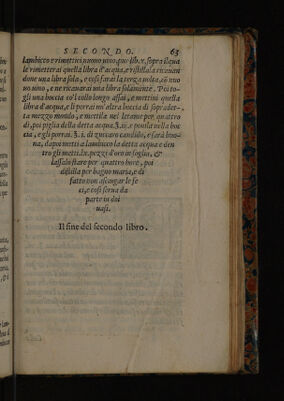 SECONDO. 63
lambicco e rimettici nuouo uino, que lib.x. sopra il qua
le rimetterai quella libra d'acqua, e ristillala ricauan
done una libra sola, e cosi farai la terza uolta, cō nuo
uo uino, e ne ricauarai una libra solamente. Poi to-
gli una boccia co'l collo longo assai, e mettici quella
libra d'acqua, e li porrai un'altra boccia di sopra
ta mezzo mondo, e mettila nel letame per quattro
di, poi piglia della detta acqua e ponila nella boc
cia, e gli porrai di zuccaro candido, e sarà buo-
na, dapoi metti a lambicco la detta acqua e den
tro gli metti pezzi d'oro in foglia, &
lassalo stare per quattro hore, poi
distilla per bagno maria, e di
fatto non asciugar le fe
ci, e cosi serua da
parte in doi
uasi.
Il fine del secondo libro.